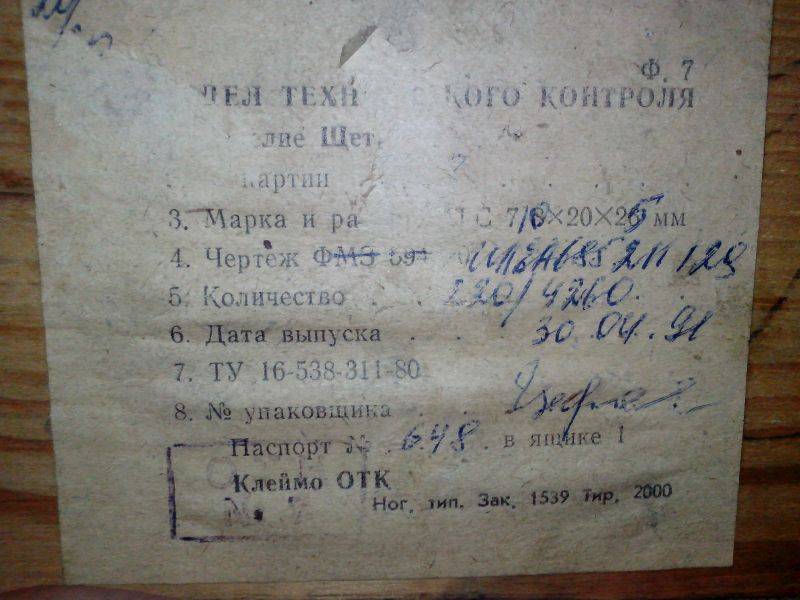 Ф. 7
ДЕЛ ТЕХН КОГО КОНТРОЛЯ
лие Щет
картин
3. Марка и ра 7/8×20×26 мм
4. Чертеж ФМЗ
5. Количество 220/4260.
6. Дата выпуска . . . . 30.04.91
7. ТУ 16-538-311-80
8. № упаковщика . .
Паспорт № 648. в ящике 1
Клеймо ОТК
Ног. тип. Зак. 1539 Тир. 2000